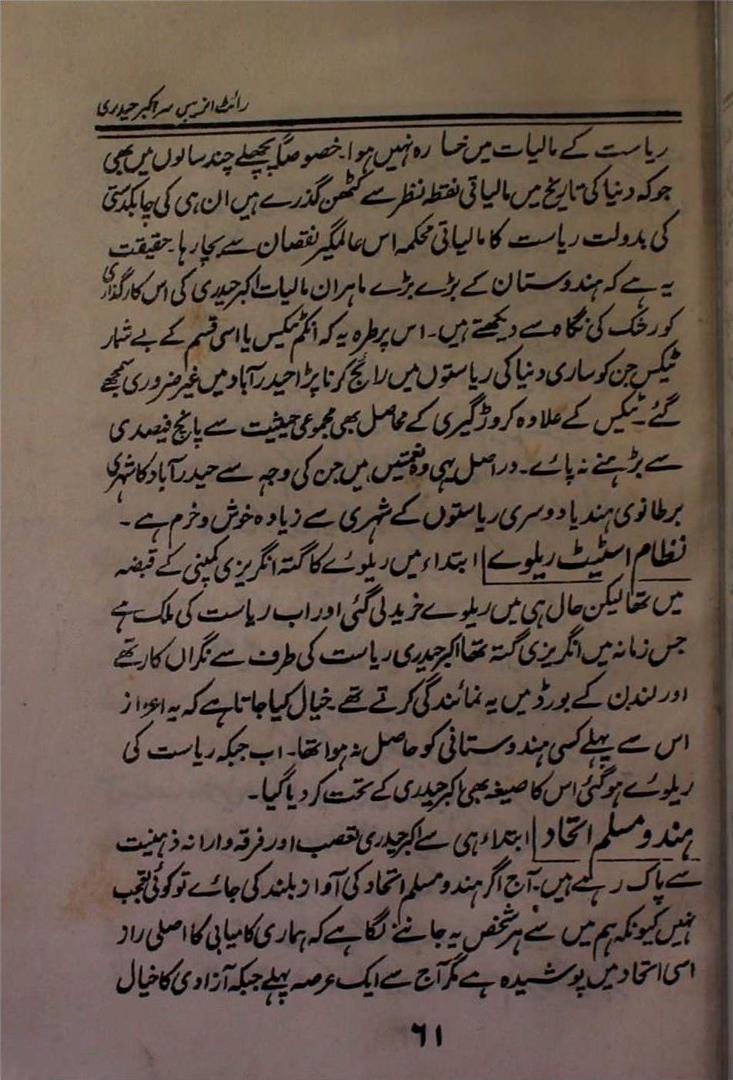 رائٹ انریبل سر اکبر حیدری
ریاست کے مالیات میں خسارہ نہیں ہوا۔ خصوصاً پچھلے چند سالوں میں بھی
جو کہ دنیا کی تاریخ میں مالیاتی نقطۂ نظر سے کٹھن گذرے ہیں ان ہی کی چابکدستی
کی بدولت ریاست کا مالیاتی محکمہ اس عالمگیر نقصان سے بچا رہا۔ حقیقت
یہ ہے کہ ہندوستان کے بڑے بڑے ماہران مالیات اکبر حیدری کی اس کارگذاری
کو رشک کی نگاہ سے دیکھتے ہیں۔ اس پر طرہ یہ کہ انکم ٹیکس یا اسی قسم کے بے شمار
ٹیکس جن کو ساری دنیا کی ریاستوں میں رائج کرنا پڑا حیدرآباد میں غیر ضروری سمجھے
گئے۔ ٹیکس کے علاوہ کروڑ گیری کے محاصل بھی مجموعی حیثیت سے پانچ فیصدی
سے بڑھنے نہ پائے۔ دراصل یہی وہ نعمتیں ہیں جن کی وجہ سے حیدرآباد کا شہری
برطانوی ہند یا دوسری ریاستوں کے شہری سے زیادہ خوش و خرم ہے۔
نظام اسٹیٹ ریلوے | ابتداء میں ریلوے کا گتہ انگریزی کمپنی کے قبضہ
میں تھا لیکن حال ہی میں ریلوے خرید لی گئی اور اب ریاست کی ملک ہے
جس زمانہ میں انگریزی گتہ تھا اکبر حیدری ریاست کی طرف سے نگراں کار تھے
اور لندن کے بورڈ میں یہ نمائندگی کرتے تھے۔ خیال کیا جاتا ہے کہ یہ اعزاز
اس سے پہلے کسی ہندوستانی کو حاصل نہ ہوا تھا۔ اب جبکہ ریاست کی
ریلوے ہو گئی اس کا صیغہ بھی اکبر حیدری کے تحت کر دیا گیا۔
ہندو مسلم اتحاد | ابتداء ہی سے اکبر حیدری تعصب اور فرقہ وارانہ ذہنیت
سے پاک رہے ہیں۔ آج اگر ہندو مسلم اتحاد کی آواز بلند کی جائے تو کوئی تعجب
نہیں کیونکہ ہم میں سے ہر شخص یہ جاننے لگا ہے کہ ہماری کامیابی کا اصلی راز
اسی اتحاد میں پوشیدہ ہے مگر آج سے ایک عرصہ پہلے جبکہ آزادی کا خیال
٦١